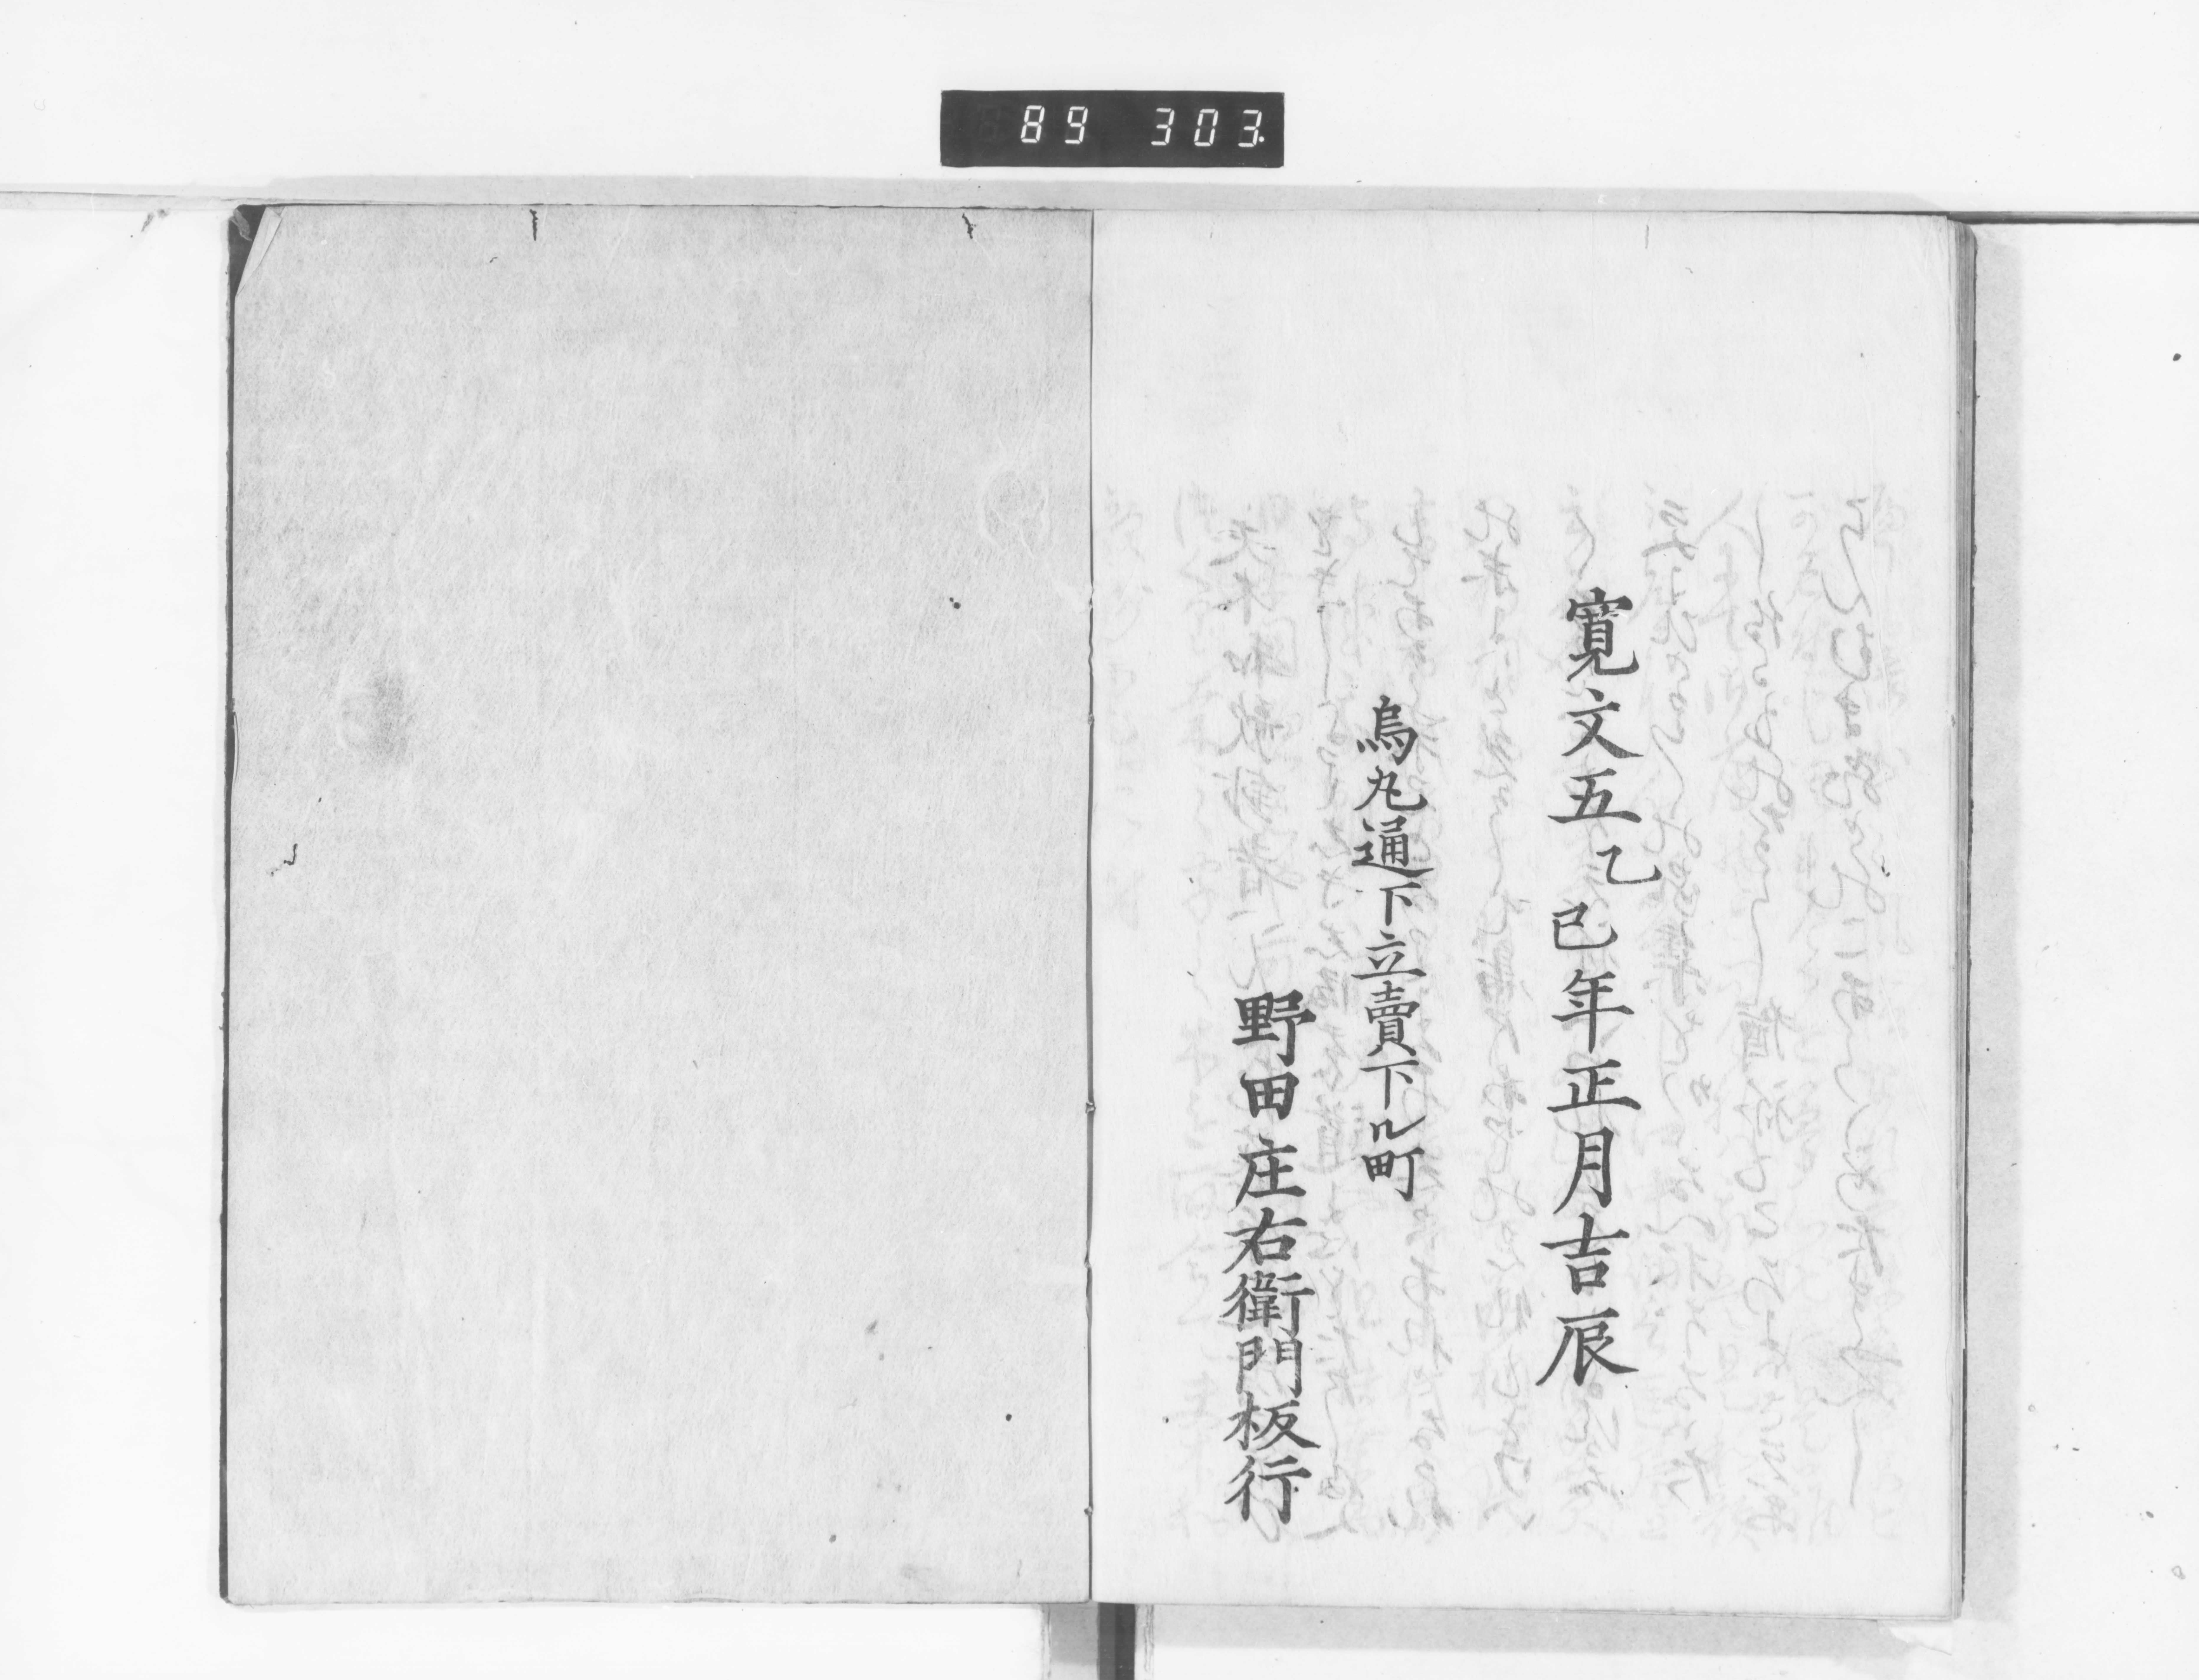 89 303
寛文五乙巳年正月吉辰
烏丸通下立賣下ル町
野田庄右衛門板行